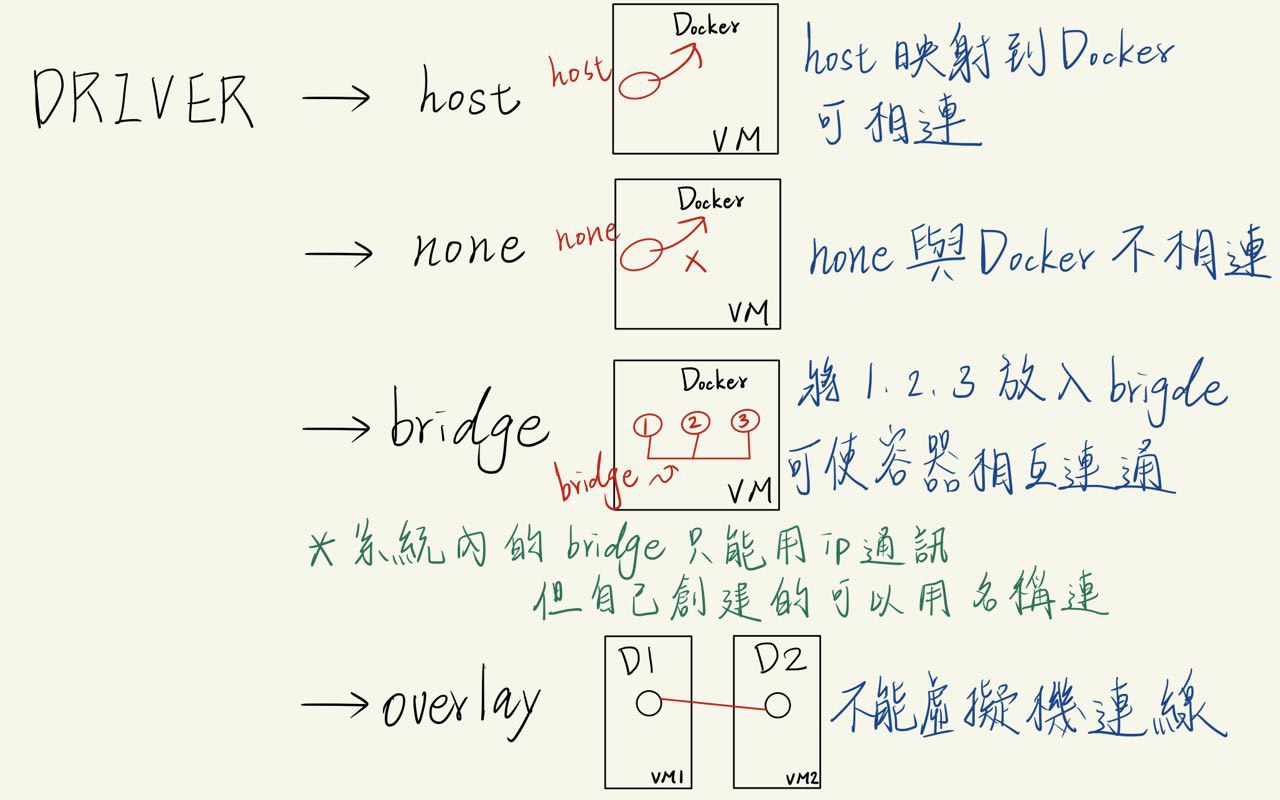 DRIVER → host
host
Docker
VM
host 映射到 Docker
可相連
→ none
none
Docker
X
VM
none 與 Docker 不相連
→ bridge
Docker
1 2 3
bridge
VM
將 1.2.3 放入 brigde
可使容器相互連通
* 系統內的 bridge 只能用 ip 通訊
但自己創建的可以用名稱連
→ overlay
D1
VM1
D2
VM2
不能虛擬機連線